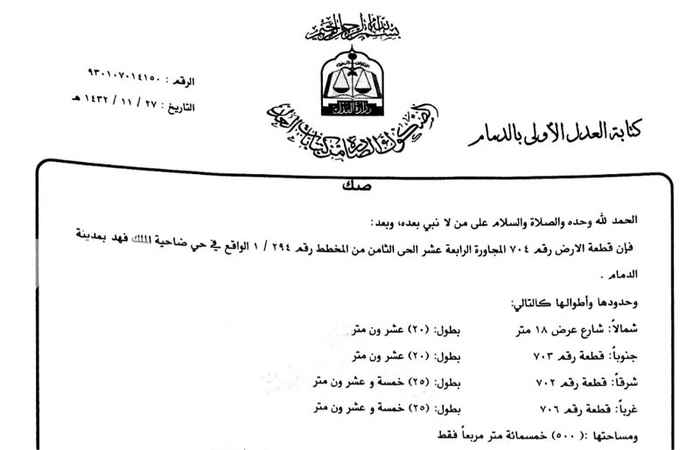 بسم الله الرحمن الرحيم
وزارة العدل
الصكوك الصادرة من كتابات العدل
الرقم : ٩٣٠١٠٧٠١٤١٥٠
التاريخ : ٢٧ / ١١ / ١٤٣٢ هـ
كتابة العدل الأولى بالدمام
صك
الحمد لله وحده والصلاة والسلام على من لا نبي بعده، وبعد:
فإن قطعة الارض رقم ٧٠٤ المجاورة الرابعة عشر الحى الثامن من المخطط رقم ٢٩٤ / ١ الواقع في حي ضاحية الملك فهد بمدينة
الدمام .
وحدودها وأطوالها كالتالي:
شمالاً: شارع عرض ١٨ متر بطول: (٢٠) عشر ون متر
جنوباً: قطعة رقم ٧٠٣ بطول: (٢٠) عشر ون متر
شرقاً: قطعة رقم ٧٠٢ بطول: (٢٥) خمسة و عشر ون متر
غرباً: قطعة رقم ٧٠٦ بطول: (٢٥) خمسة و عشر ون متر
ومساحتها :( ٥٠٠) خمسمائة متر مربعاً فقط